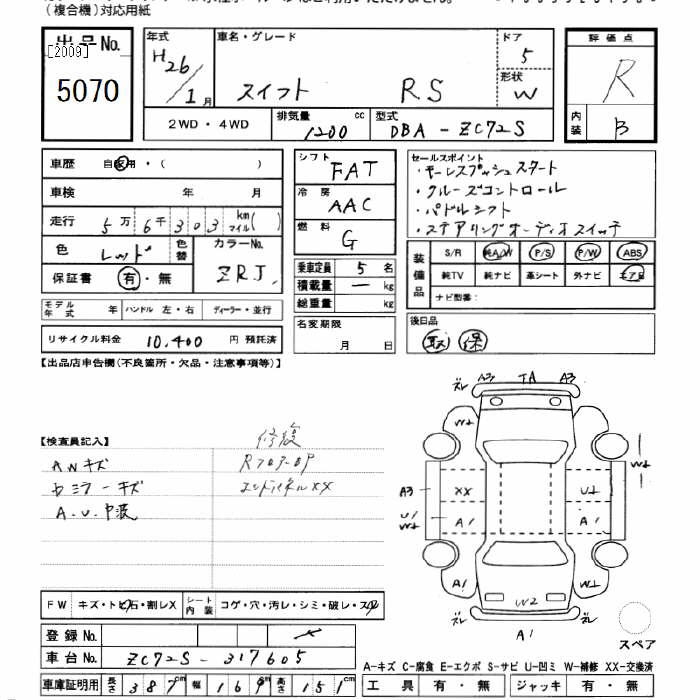 (複合機)対応用紙
出品No.
[2009]
5070
年式
H26/1月
車名・グレード
スイフト RS
ドア
5
形状
W
評価点
R
内装
B
2WD・4WD
排気量
1200 cc
型式
DBA-ZC72S
車歴 自家用・( )
車検 年 月
走行 5万6千303 km マイル( )
色 レッド 色替
カラーNo.
ZRJ
保証書 有・無
モデル年式 年 ハンドル 左・右 ディーラー・並行
リサイクル料金 10,400 円 預託済
シフト FAT
冷房 AAC
燃料 G
乗車定員 5 名
積載量 ー kg
総重量 kg
名変期限
月 日
セールスポイント
・キーレスプッシュスタート
・クルーズコントロール
・パドルシフト
・ステアリングオーディオスイッチ
装備品
S/R 純A/W P/S P/W ABS
純TV 純ナビ 革シート 外ナビ エアB
ナビ型番:
後日品
取 保
【出品店申告欄(不良箇所・欠品・注意事項等)】
【検査員記入】
修復
AWキズ
エンドパネルXX
FW キズ・トビ石・割レX
シート内装 コゲ・穴・汚レ・シミ・破レ・スレ
登録No.
車台No. ZC72S-317605
車庫証明用 長さ 387cm 幅 169cm 高さ 151cm
ズレ A3 TA A3 ズレ
W2
W2
A3 XX U2
U1 W2 A1 A1
A1 W2
W2
ズレ A1 ズレ
スペア
A-キズ C-腐食 E-エクボ S-サビ U-凹ミ W-補修 XX-交換済
工具 有・無 ジャッキ 有・無